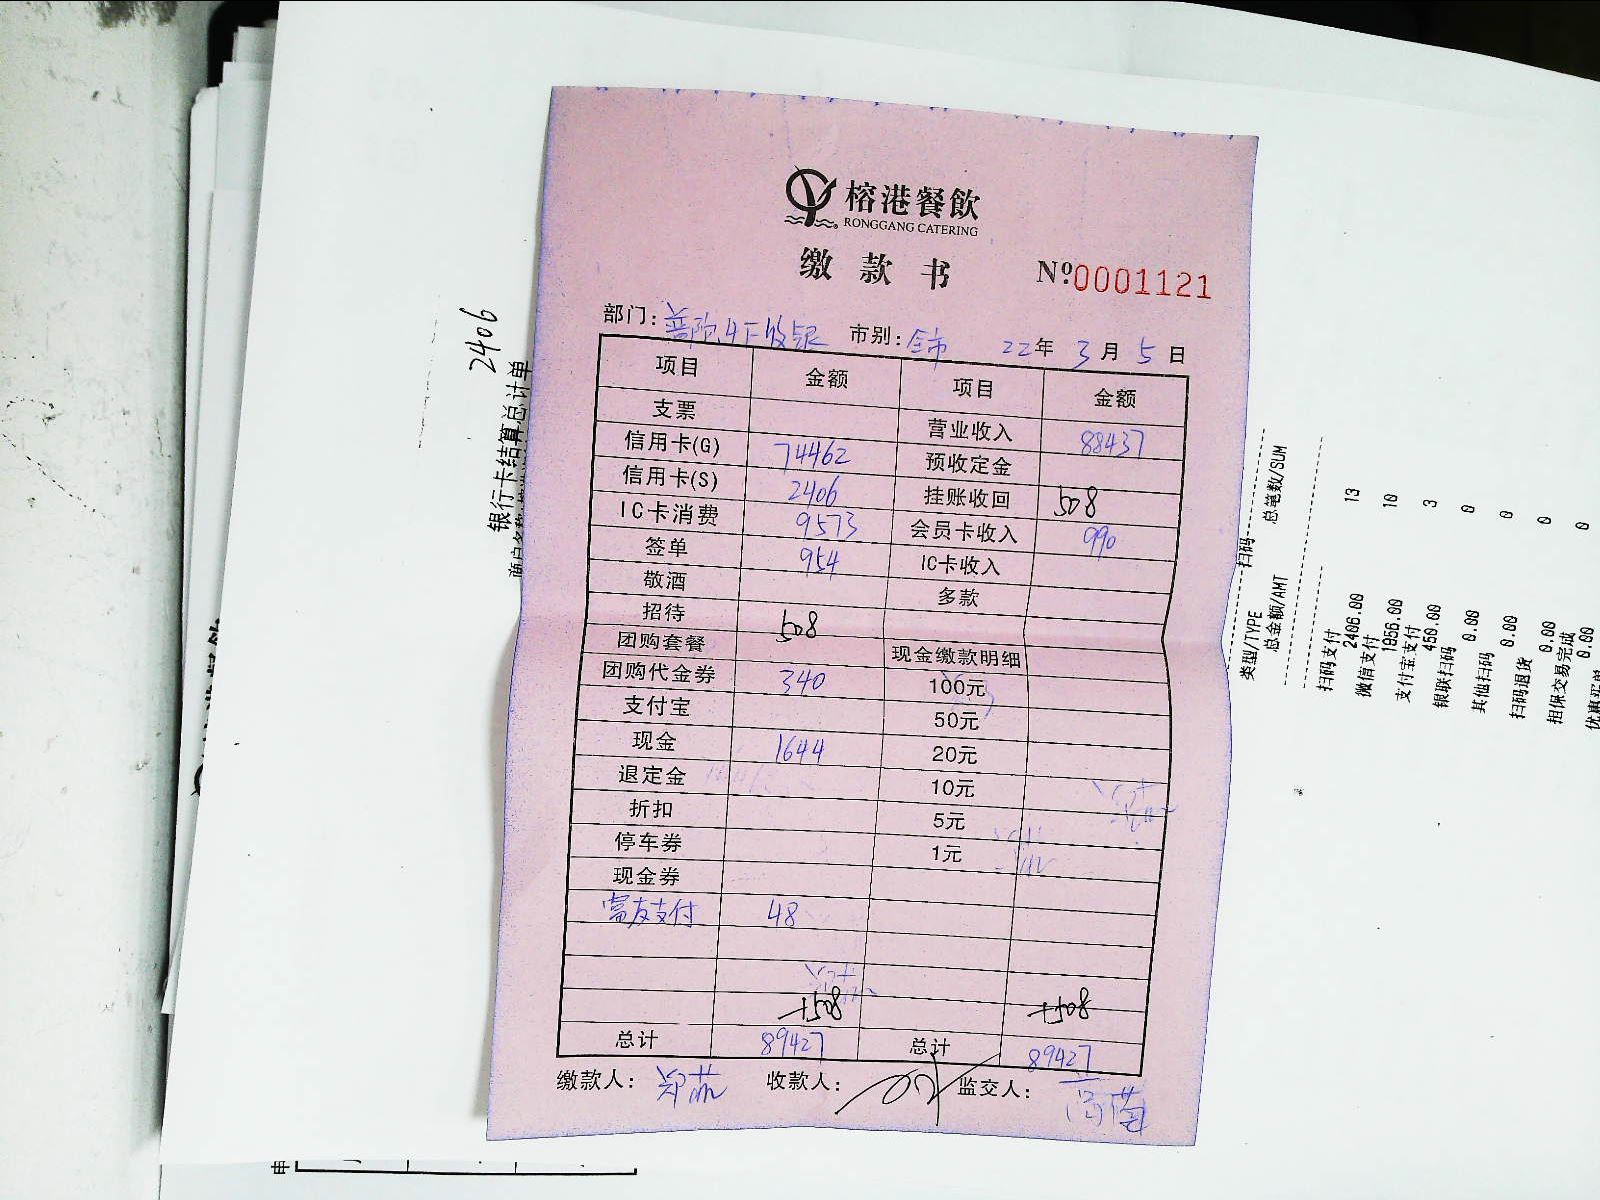 榕港餐飲
RONGGANG CATERING
缴款书 Nº:0001121
部门:普陀4F收银 市别:全市 22年3月5日
项目 金额 项目 金额
支票 营业收入 88437
信用卡(G) 74462 预收定金
信用卡(S) 2406 挂账收回 508
IC卡消费 9573 会员卡收入 990
签单 954 IC卡收入
敬酒 多款
招待 508
团购套餐 现金缴款明细
团购代金券 340 100元
支付宝 50元
现金 1644 20元
退定金 10元
折扣 5元
停车券 1元
现金券
富友支付 48
+508 +508
总计 89427 总计 89427
缴款人: 收款人: 监交人:
2406
银行卡结算总计单
扫码
类型/TYPE 总笔数/SUM
总金额/AMT
扫码支付 13
2406.00
微信支付 10
1956.00
支付宝支付 3
450.00
银联扫码 0
0.00
其他扫码 0
0.00
扫码退货 0
0.00
担保交易完成 0
0.00